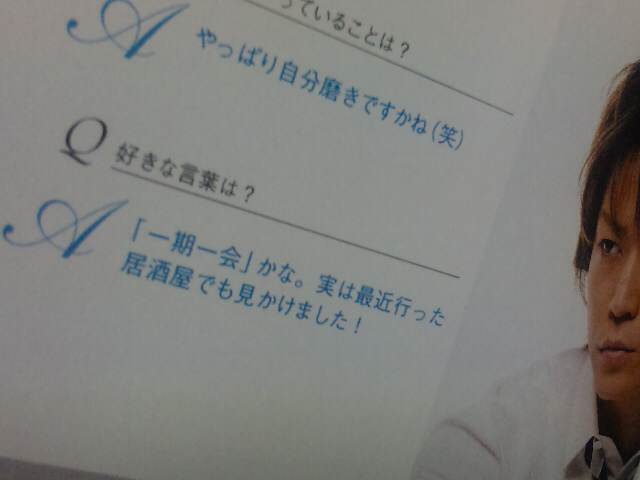 っていることは？
A やっぱり自分磨きですかね(笑)
Q 好きな言葉は？
A 「一期一会」かな。実は最近行った
居酒屋でも見かけました！